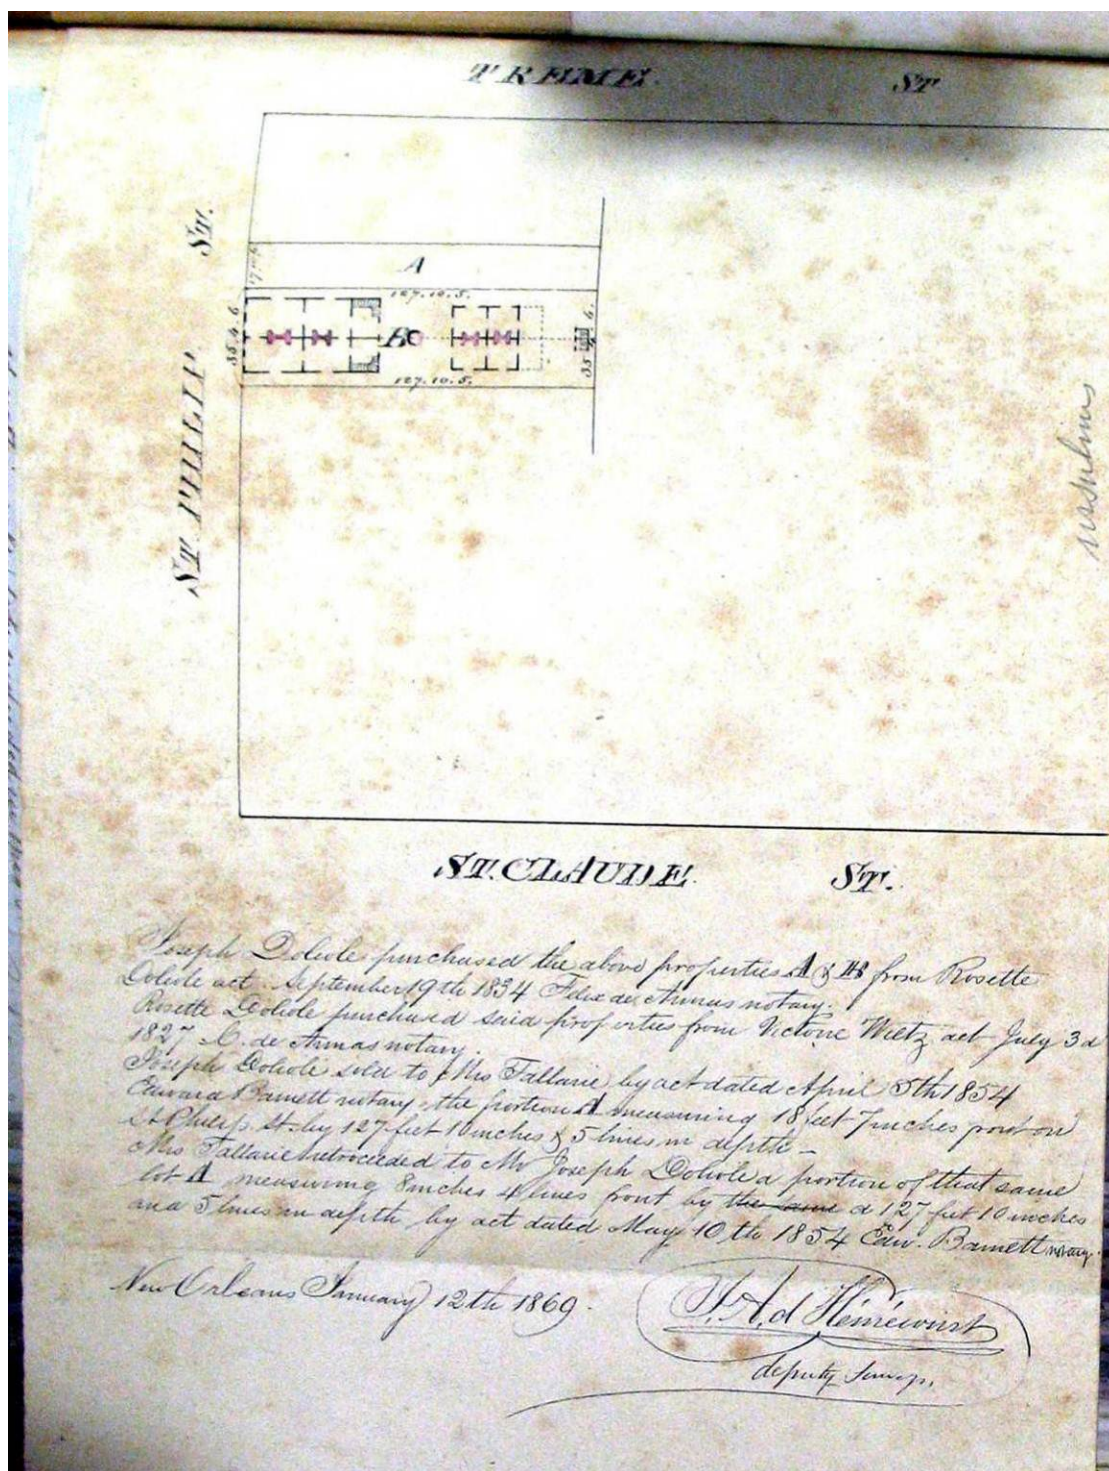 TREME ST
ST. PHILIP ST.
A
127.10.5.
35.4.6.
B
35 6.
127.10.5.
ST. CLAUDE ST.
Joseph Doliole purchased the above properties A & B from Rosette
Doliole act September 19th 1834 Felix de Armas notary.
Rosette Doliole purchased said properties from Victorie Wiltz act July 3d
1827 C. de Armas notary.
Joseph Doliole sold to Mrs Tallarie by act dated April 5th 1854
Edward Barnett notary the portion A measuring 18 feet 7 inches front on
St Philip St. by 127 feet 10 inches & 5 lines in depth –
Mrs Tallarie retroceeded to Mr Joseph Doliole a portion of that same
lot A measuring 8 inches 4 lines front by the same a 127 feet 10 inches
and 5 lines in depth by act dated May 10th 1854 Edw. Barnett notary.
New Orleans January 12th 1869.
deputy Survyr.